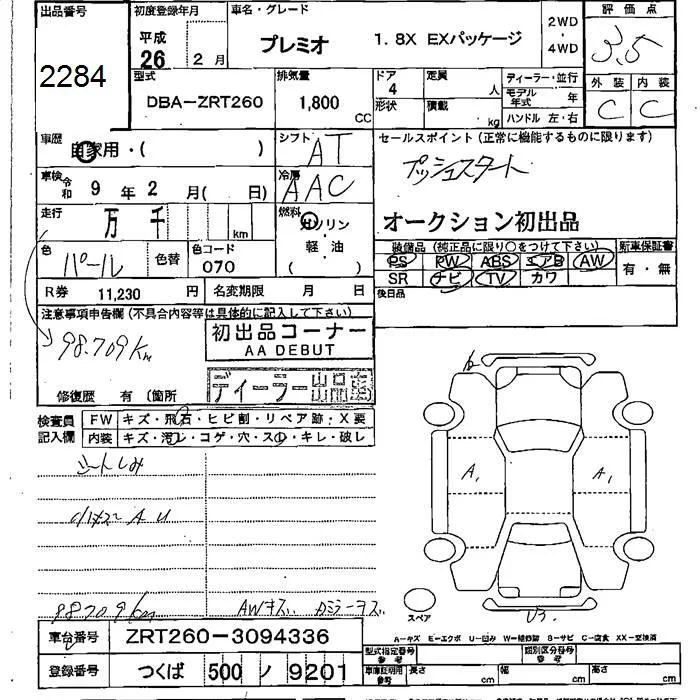 出品番号
2284
初度登録年月
平成
26 2月
車名・グレード
プレミオ 1.8X EXパッケージ
2WD
・
4WD
評価点
3.5
外装 内装
C C
型式
DBA-ZRT260
排気量
1,800 CC
ドア
4
形状
定員
人
積載
kg
ディーラー・並行
モデル年式 年
ハンドル 左・右
車歴
自家用・( )
シフト
AT
車検 令和 9年 2月( 日)
冷房
AAC
走行
万 千 km
燃料
ガソリン
軽・油
( )
色
パール
色替
色コード
070
R券 11,230 円
名変期限 月 日
セールスポイント(正常に機能するものに限ります)
プッシュスタート
オークション初出品
装備品(純正品に限り○をつけて下さい)
PS PW ABS エアB AW
SR ナビ TV カワ
新車保証書
有・無
後日品
注意事項申告欄(不具合内容等は具体的に記入して下さい)
98.709Km
初出品コーナー
AA DEBUT
ディーラー出品車
修復歴 有 (箇所
検査員
記入欄
FW キズ・飛石・ヒビ割・リペア跡・X要
内装 キズ・汚レ・コゲ・穴・スレ・キレ・破レ
シートしみ
A U
98709Km
AWキズ
A1 A1
U3
スペア
A-キズ E-エクボ U-凹み W-補修跡 B-サビ C-腐食 XX-交換済
車台番号 ZRT260-3094336
登録番号 つくば 500 ノ 9201
型式指定番号
参考
類別区分番号
参考
車庫証明用
参考
長さ cm 幅 cm 高さ cm